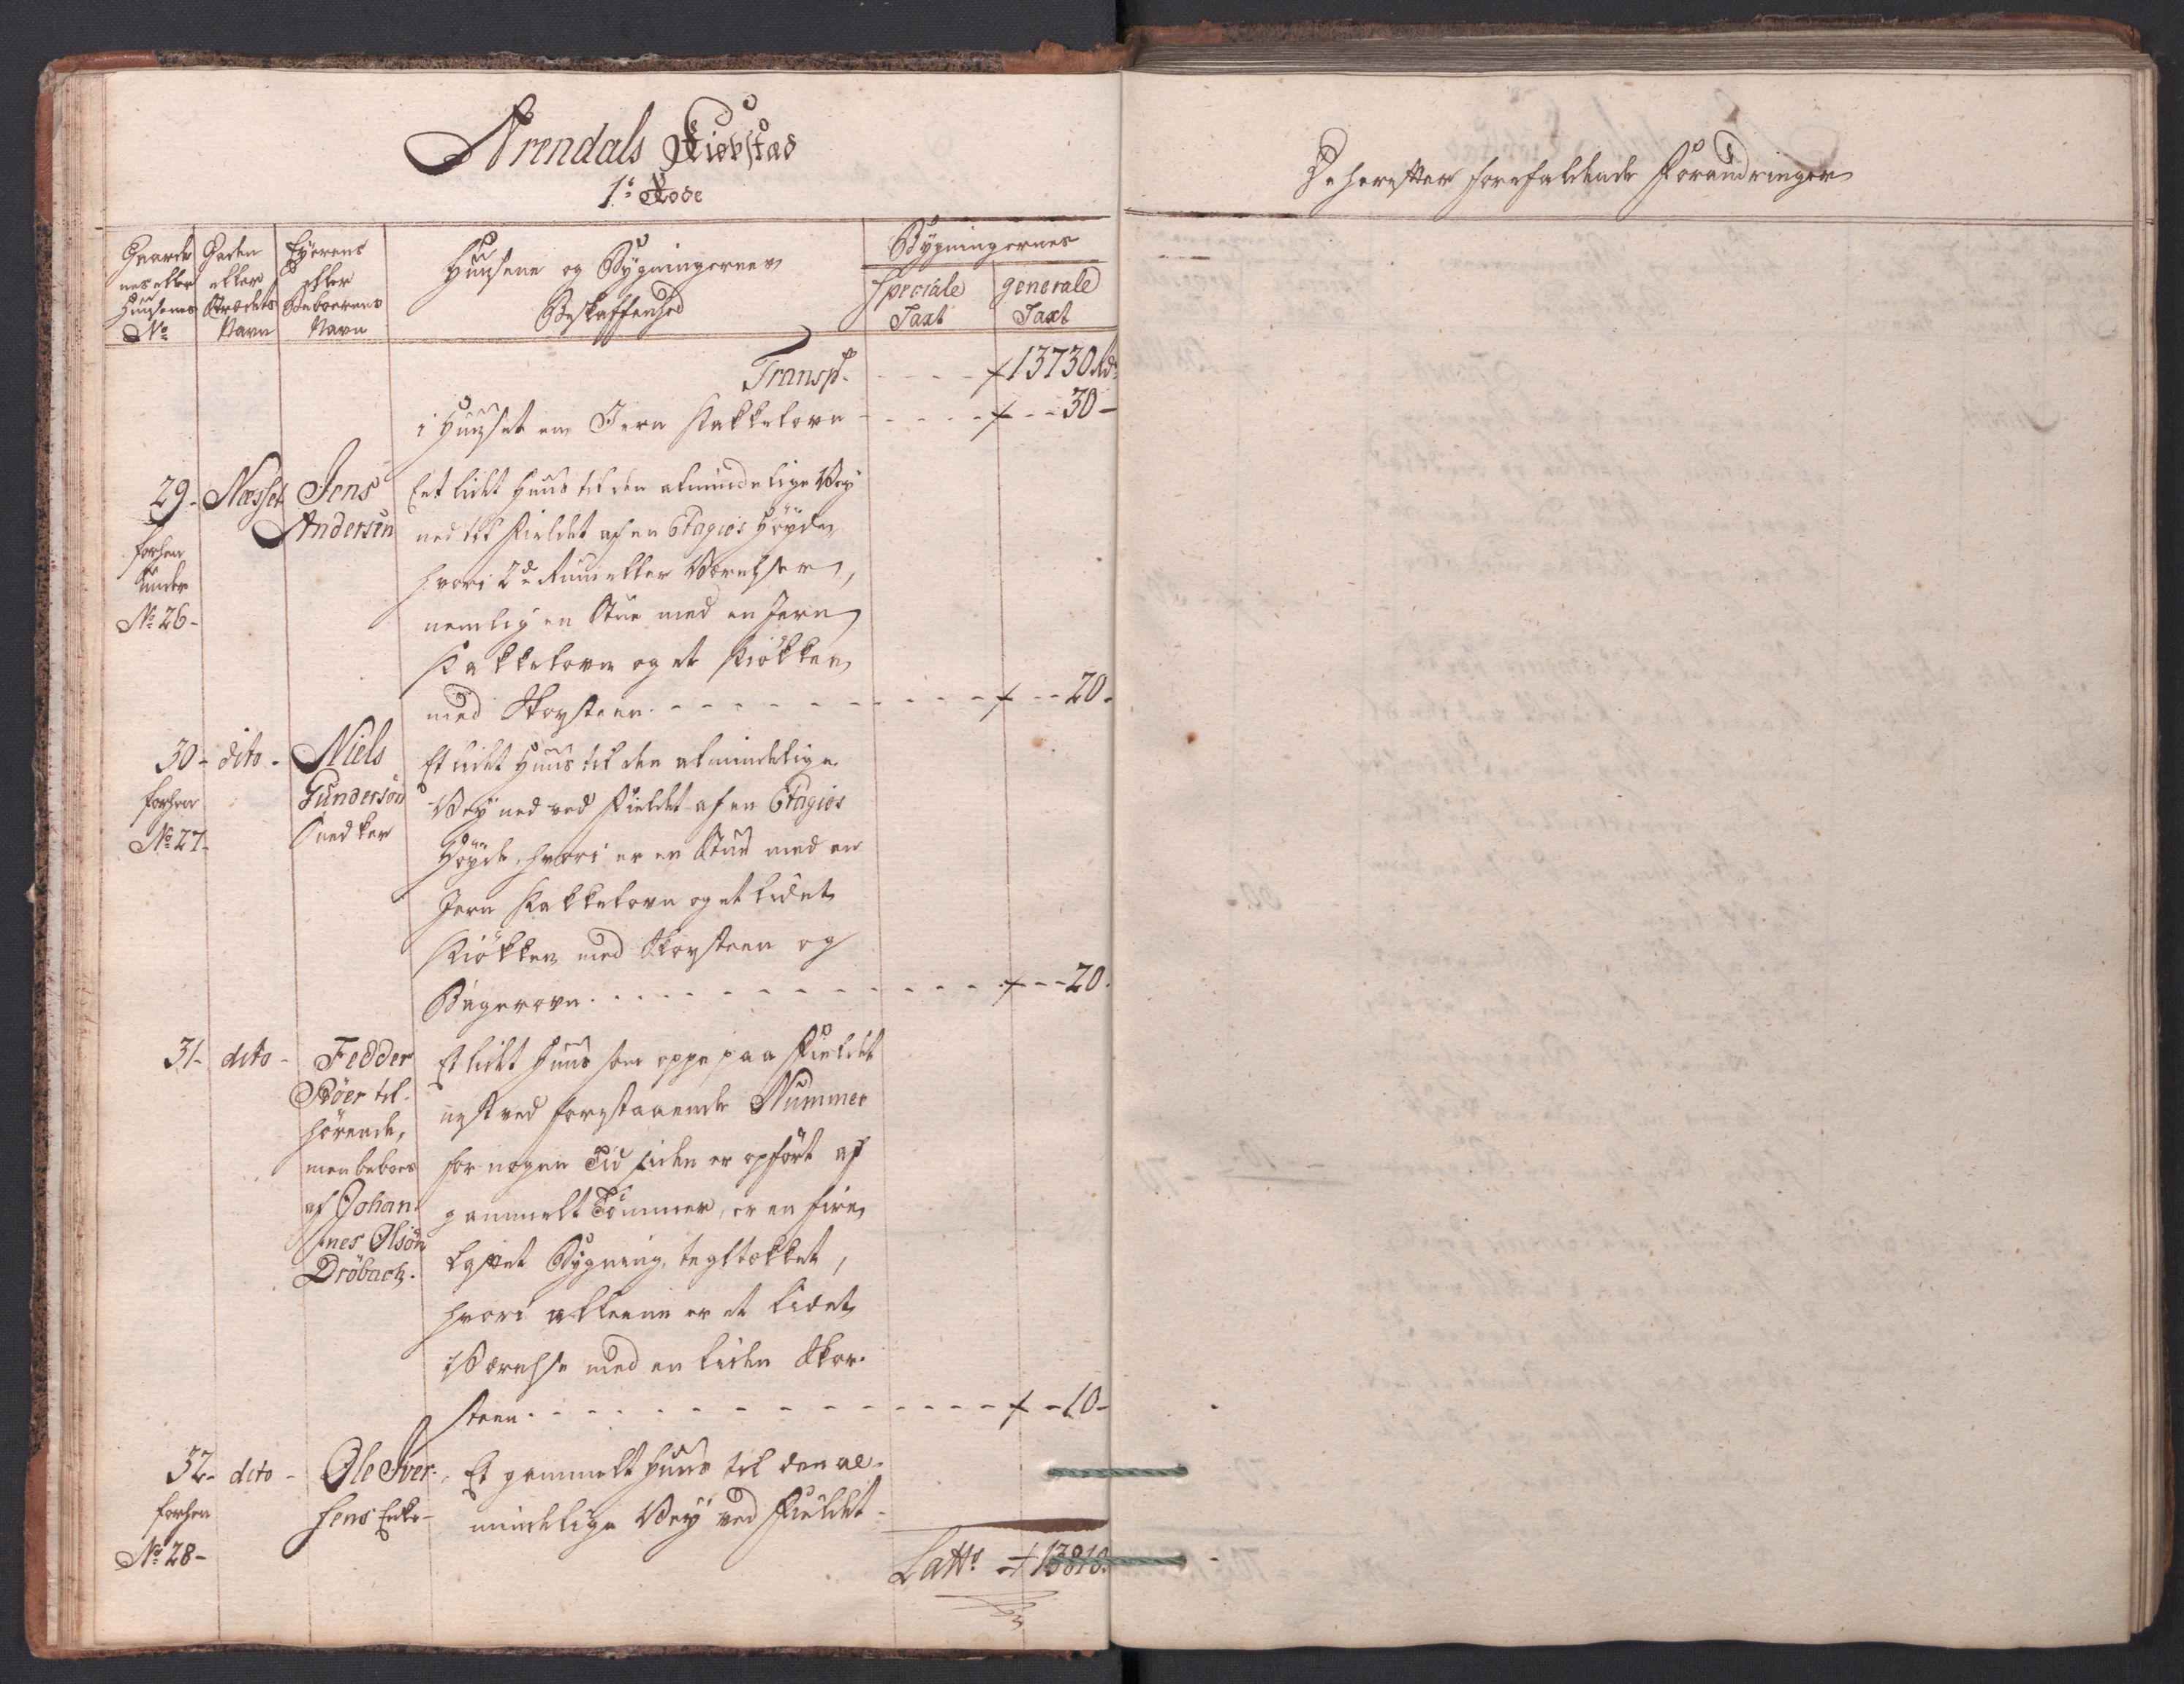 Arendals Kiøbstad
1: Rode
Gaarde
nes eller
Huusenes
No
Gaden
eller
Strædets
Navn
Eyerens
eller
Beboerens
Navn
Huusene og Bygningernes
Beskaffenhed
Bygningernes
speciale
Taxt
generale
Taxt
Transpt - - - - 13730 Rdr
i Huuset en Jern Kakkelovn - - - - - 30 -
29. Næsset Jens
Andersen
forhen
under
No 26 -
Eet lidet Huus til den almindelige Vej
ned til Fieldet af en Etagies Høyde,
hvori 2de Rum eller Værelser,
nemlig en Stue med en Jern
Kakkelovn og et Kiøkken
med Skorsteen. - - - - - - - - - - 20 -
30 - dito - Niels
Gundersøn
Snedker
forhen
No 27 -
Et lidet Huus til den almindelige
Vej ned ved Fieldet af en Etagies
Høyde, hvori er en Stue med en
Jern Kakkelovn og et lidet
Kiøkken med Skorsteen og
Bagerovn. - - - - - - - - - - 20.
31 - dito - Fedder
Støer til-
hørende,
men beboes
af Johan-
nes Olsøn
Drøbach.
Et lidet Huus som oppe paa Fieldet
næst ved forestaaende Nummer
for nogen Tid siden er opført af
gammelt Tømmer, er en fire
laftet Bygning, tegltækket,
hvori alleene er et lidet
Værelse med en liden Skor-
steen. - - - - - - - - - - 10 -
32 - dito - Ole Iver-
sens Enke -
forhen
No 28 -
Et gammelt Huus til den al-
mindelige Vej ved Fieldet -
Latts 13810.
De herefter forefaldende Forandringer